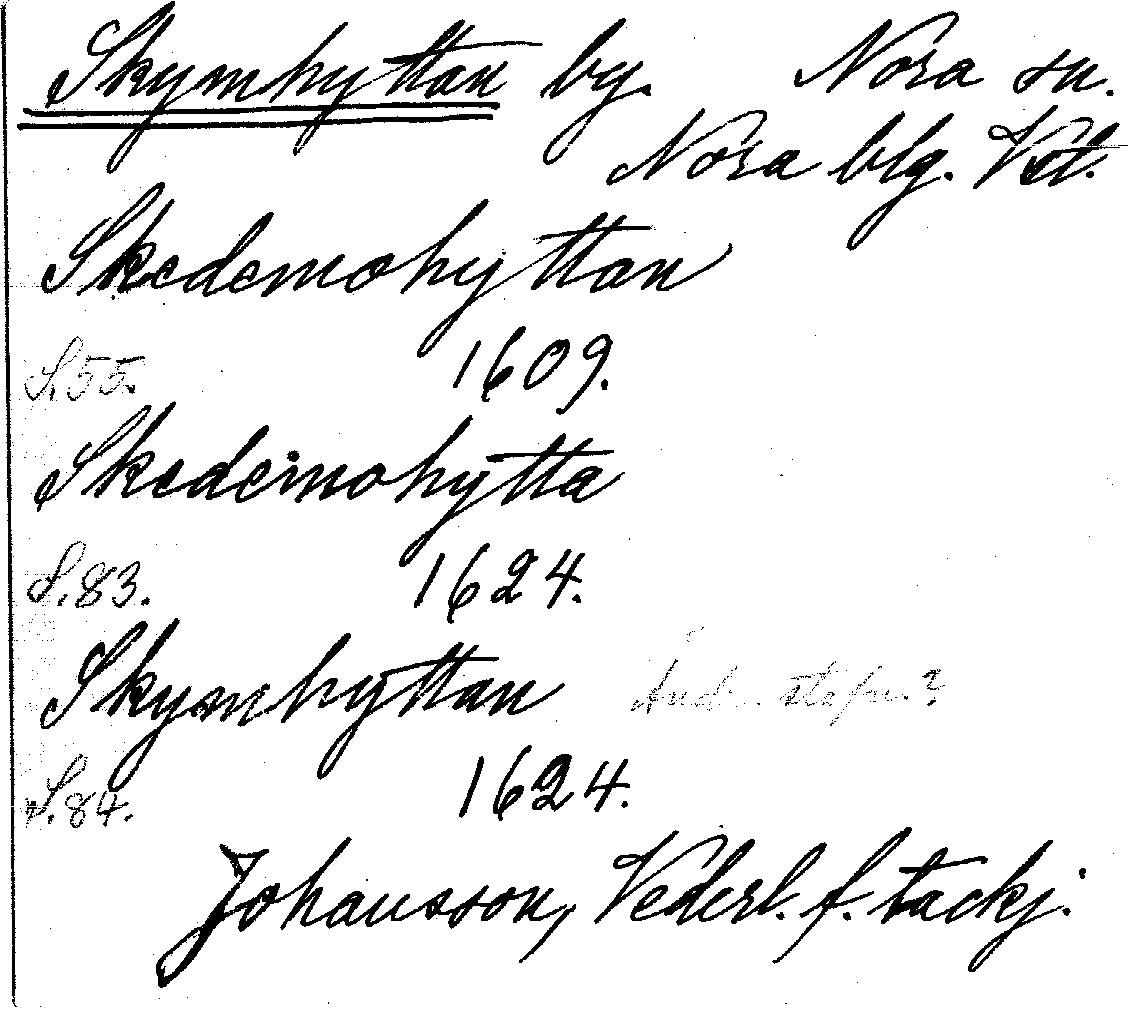 Skymhyttan by. Nora sn.
Nora blg. Vstl.
Skedemohyttan
S.55. 1609.
Skedemohytta
S.83. 1624.
Skymhyttan
S.84. 1624.
Johansson, Vederl. f. tackj.